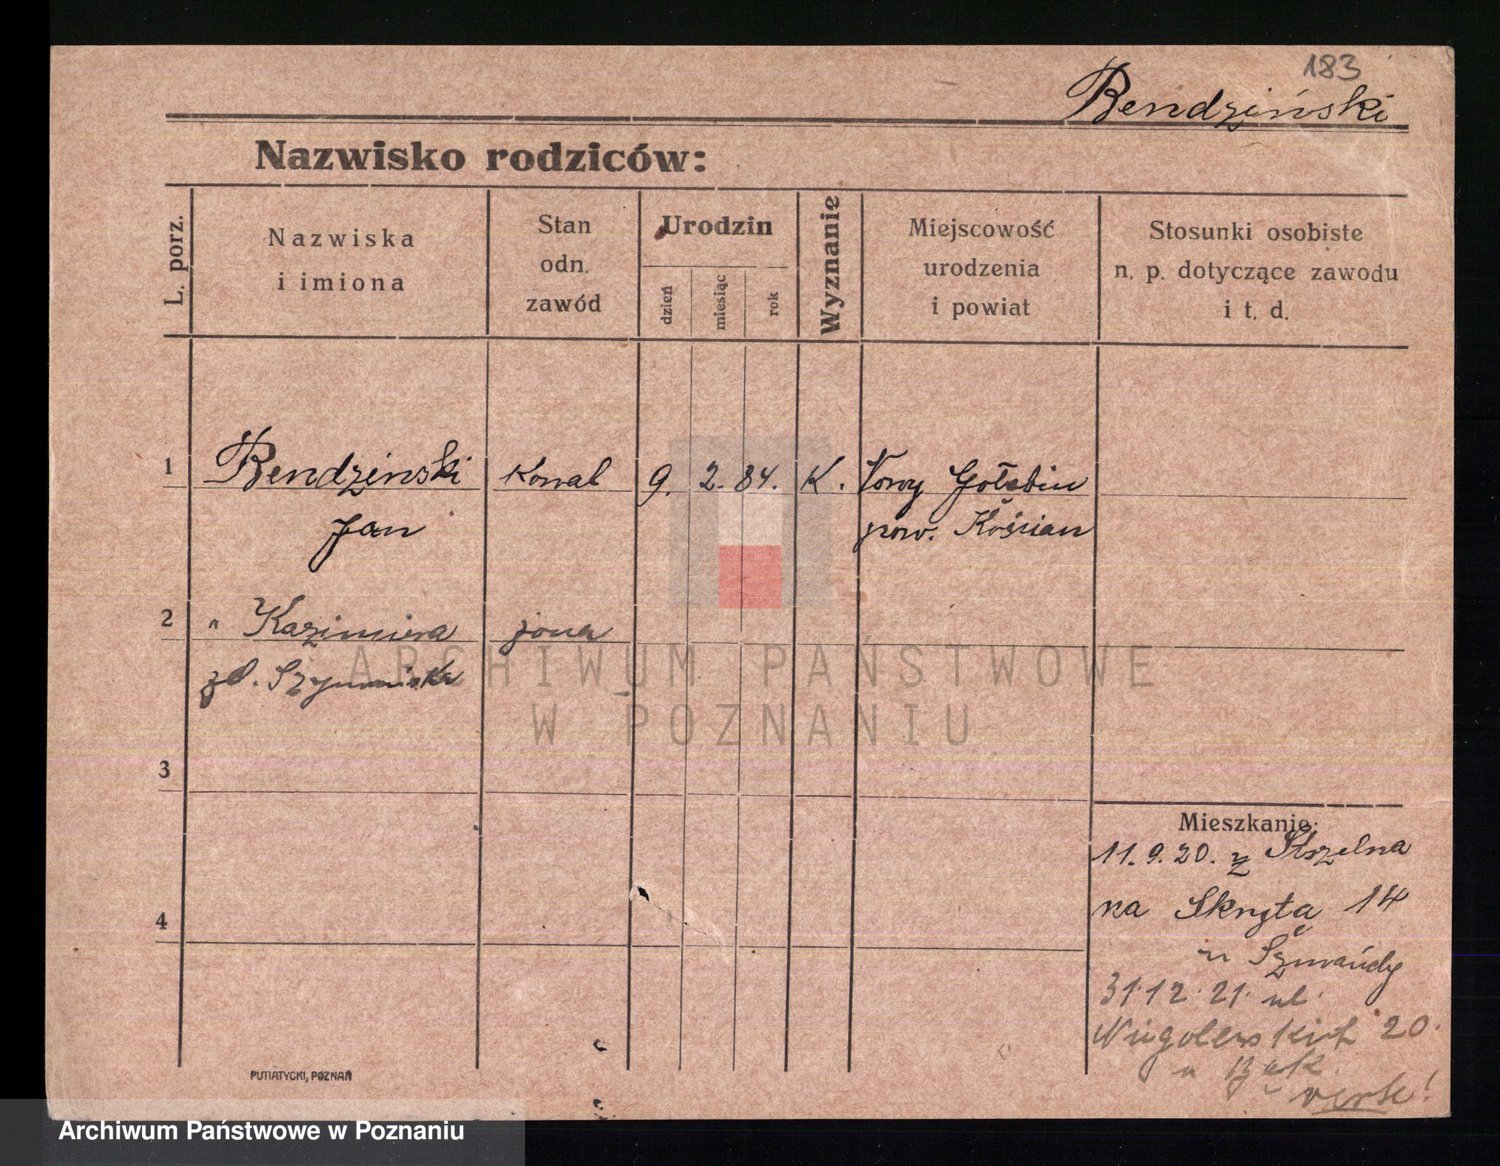 183
Bendziński
Nazwisko rodziców:
L. porz.
Nazwiska
i imiona
Stan
odn.
zawód
Urodzin
dzień
miesiąc
rok
Wyznanie
Miejscowość
urodzenia
i powiat
Stosunki osobiste
n. p. dotyczące zawodu
i t. d.
1
Bendzinski kowal 9. 2. 84. K. Nowy Gołębin
Jan pow. Kościan
2
" Kazimiera żona
zd. Szymańska
ARCHIWUM PAŃSTWOWE
W POZNANIU
3
4
Mieszkanie:
11.9.20. z Strzelna
na Skryta 14
u Szwańdy
31.12.21. ul.
20.
u
verte!
PUTIATYCKI, POZNAŃ
Archiwum Państwowe w Poznaniu